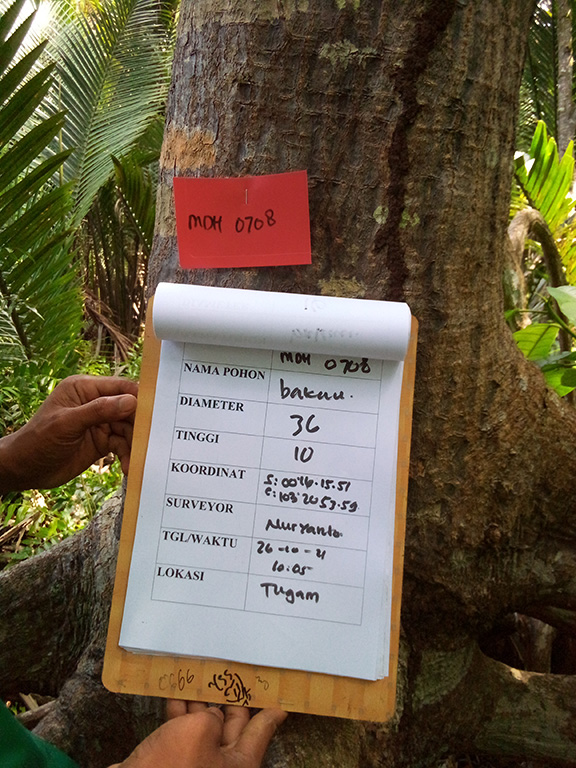 MDH 0708
MDH 0708
NAMA POHON bakau.
DIAMETER 36
TINGGI 10
KOORDINAT S: 0046.15.51
E: 103 2053.59
SURVEYOR Nuryanto
TGL/WAKTU 26-10-21
10:05
LOKASI Tugam